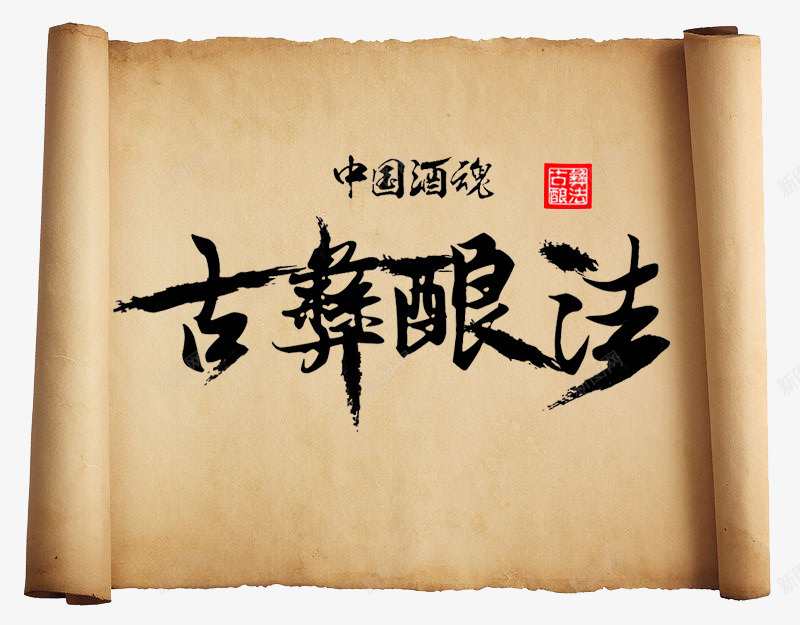 中国酒魂
古彝酿法
古彝酿法